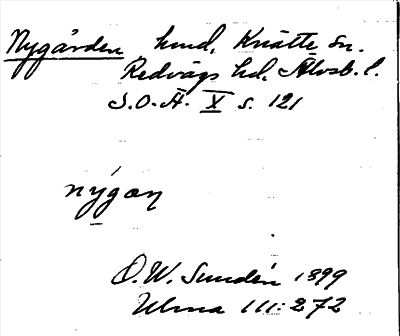 Nygården hmd, Knätte sn.
Redvägs hd. Älvsb. l.
S.O.Ä. X s. 121
nýgaɳ
O.W. Sundén 1899
Ulma 111:272